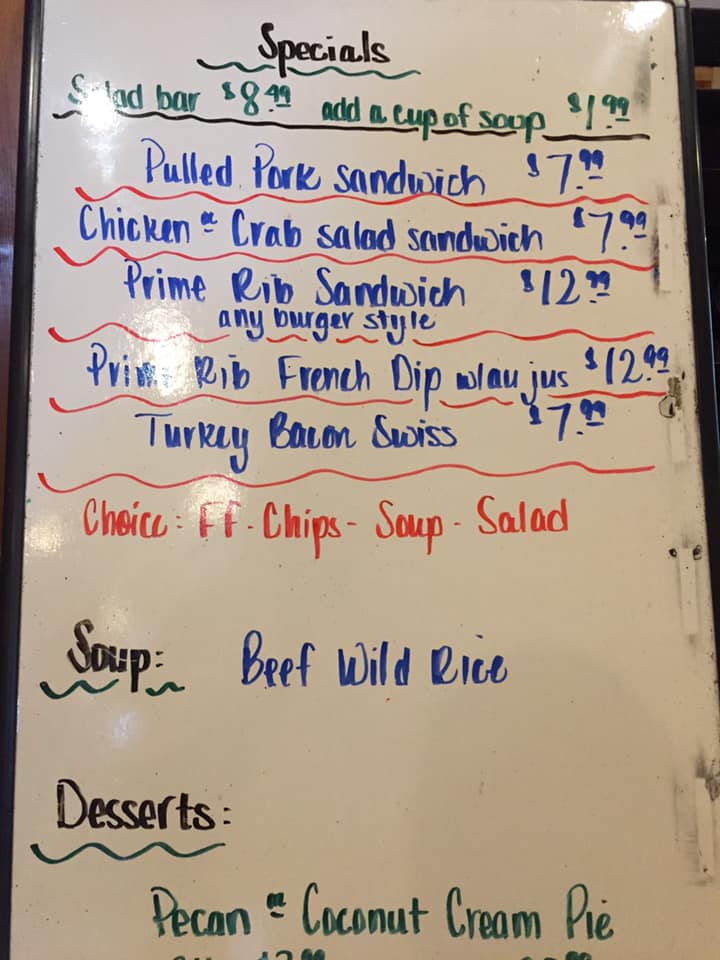 Specials
Salad bar $8.49 add a cup of soup $1.99
Pulled Pork sandwich $7.99
Chicken or Crab salad sandwich $7.99
Prime Rib Sandwich $12.99
any burger style
Prime Rib French Dip w/au jus $12.99
Turkey Bacon Swiss $7.99
Choice: FF - Chips - Soup - Salad
Soup: Beef Wild Rice
Desserts:
Pecan or Coconut Cream Pie